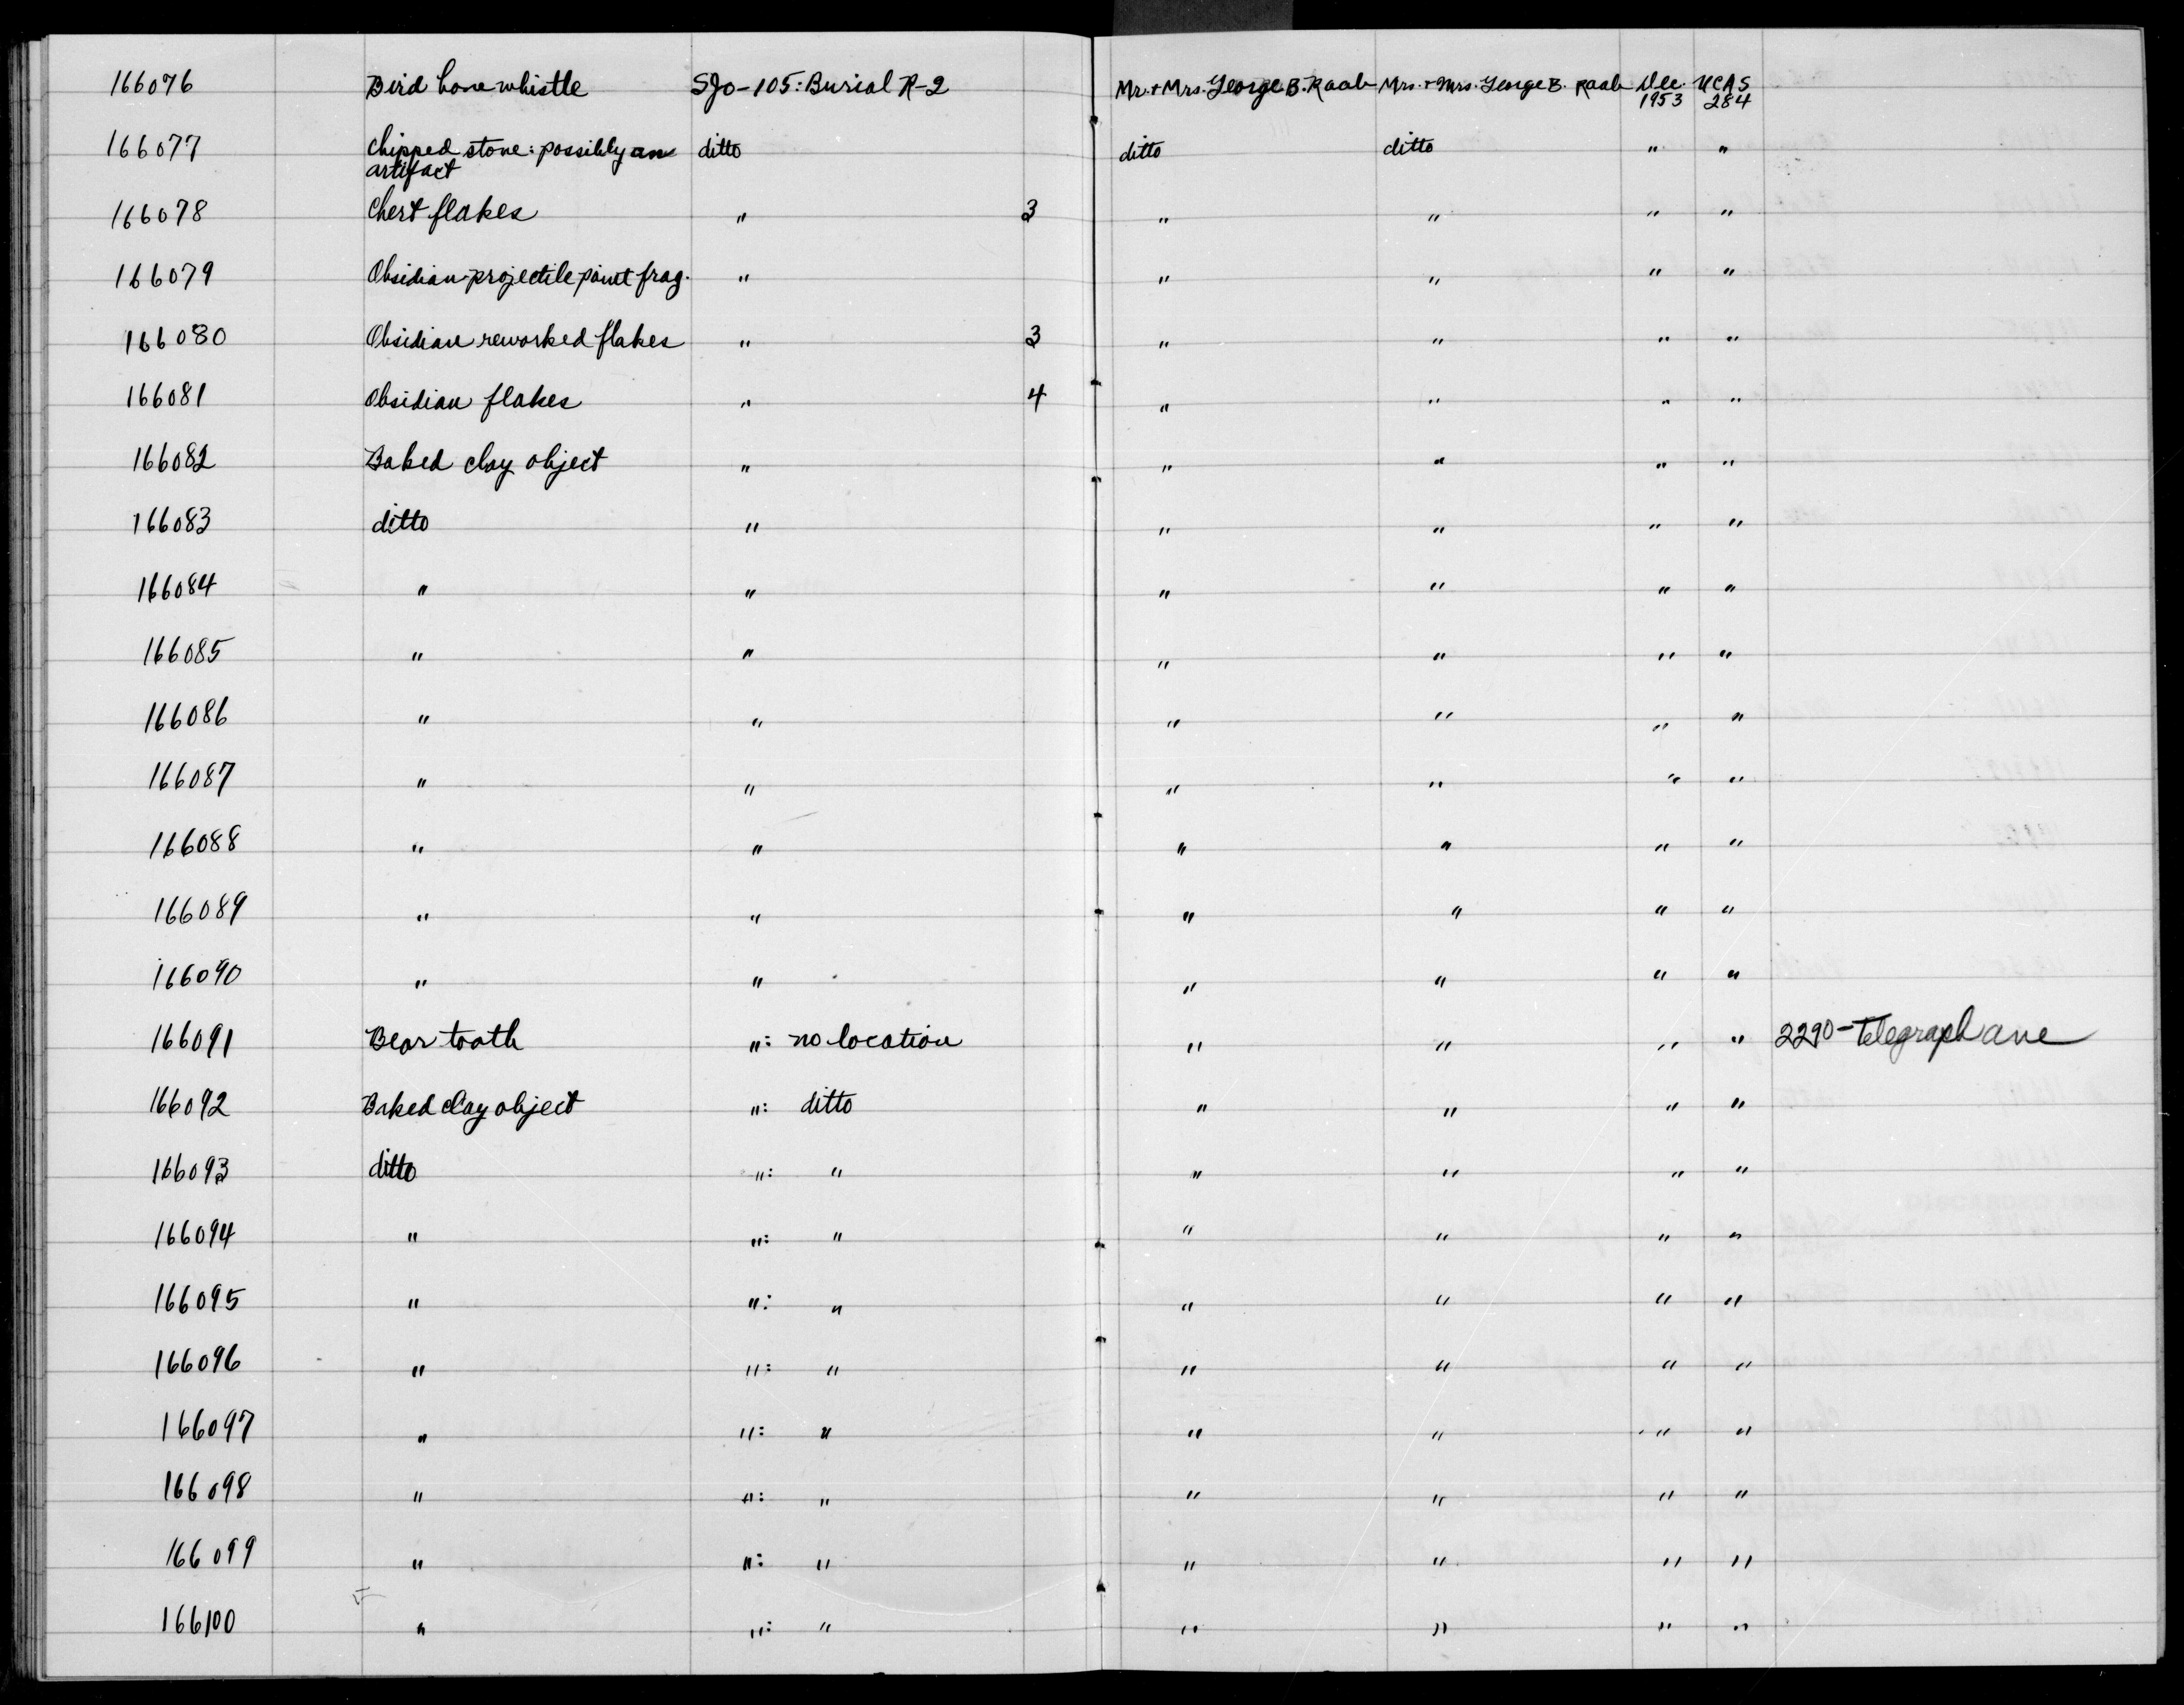 166076 Bird bone whistle SJo-105: Burial R-2 Mr. + Mrs. George B. Raab Mrs. + Mrs. George B. Raab Dec. 1953 UCAS 284
166077 Chipped stone: possibly an artifact ditto ditto ditto " "
166078 Chert flakes " 3 " " " "
166079 Obsidian projectile point frag. " " " " "
166080 Obsidian reworked flakes " 3 " " " "
166081 Obsidian flakes " 4 " " " "
166082 Baked clay object " " " " "
166083 ditto " " " " "
166084 " " " " " "
166085 " " " " " "
166086 " " " " " "
166087 " " " " " "
166088 " " " " " "
166089 " " " " " "
166090 " " " " " "
166091 Bear tooth ": no location " " " " 2290-Telegraph ave
166092 Baked clay object ": ditto " " " "
166093 ditto ": " " " " "
166094 " ": " " " " "
166095 " ": " " " " "
166096 " ": " " " " "
166097 " ": " " " " "
166098 " ": " " " " "
166099 " ": " " " " "
166100 " ": " " " " "